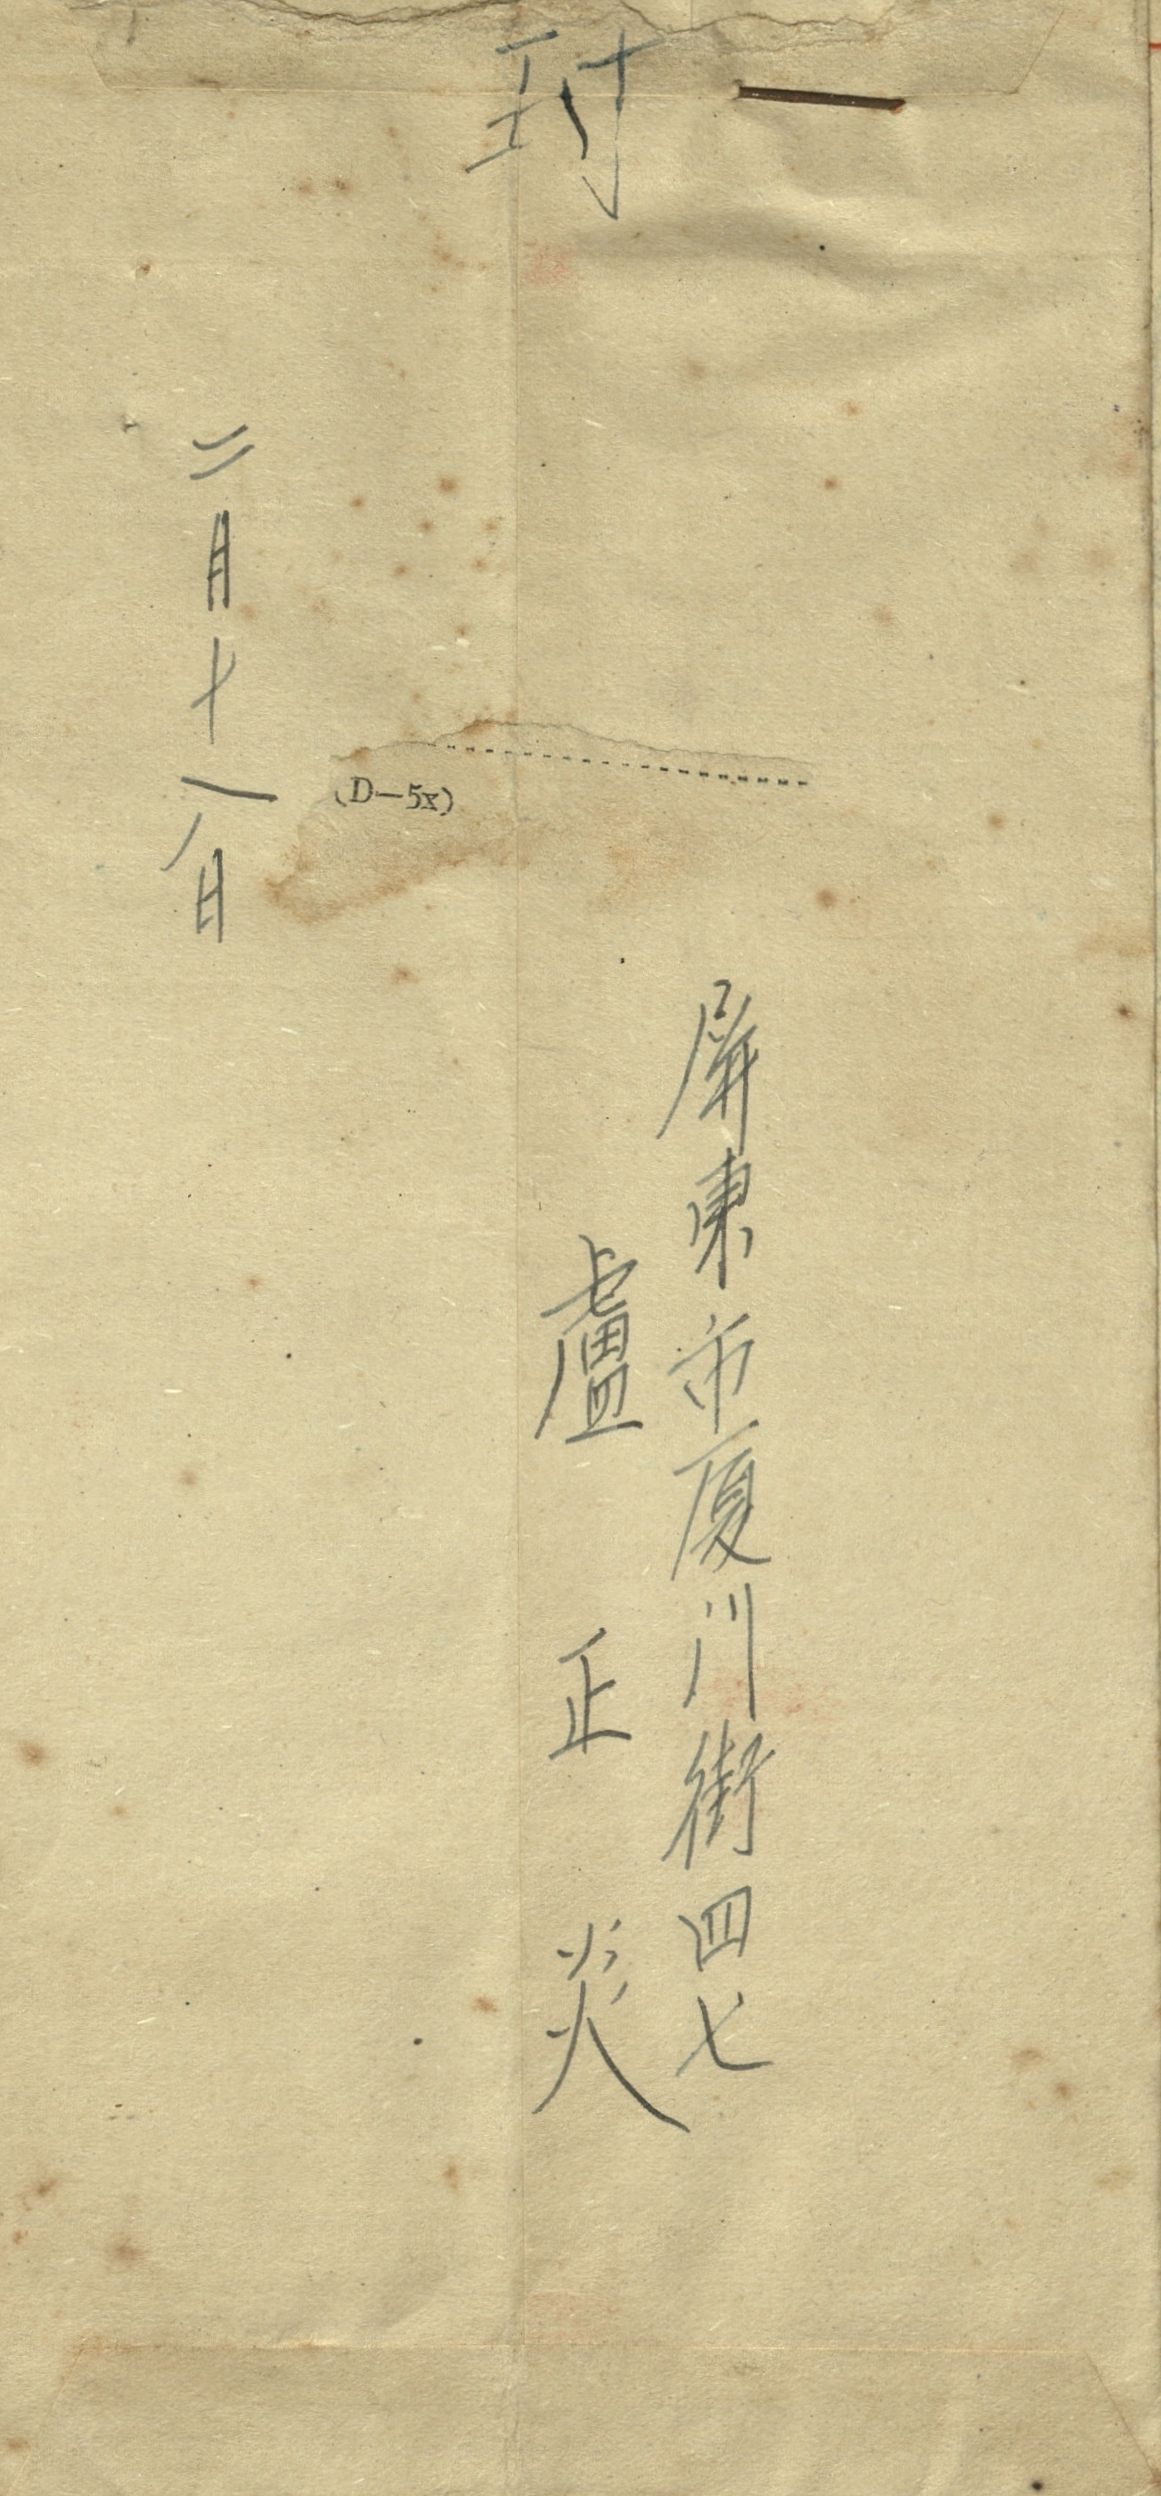 封
屏東市廈川街四七
盧正炎
二月十一八日
(D-5x)